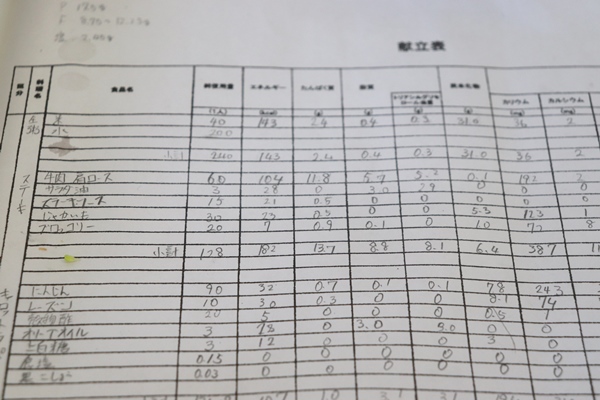 献立表
区分 料理名 食品名 純使用量 エネルギー たんぱく質 脂質 炭水化物 カリウム カルシウム
(1人) (kcal) (g) (g) (g) (g) (mg) (mg)
米 40 143 2.4 0.4 0.3 31.0 36 2
水 200
小計 240 143 2.4 0.4 0.3 31.0 36 2
ステーキ 牛肉 肩ロース 60 104 11.8 5.7 5.2 0.1 192 2
サラダ油 3 28 0 3.0 2.9 0 0 0
ステーキソース 15 21 0.5 0 0 0 0
じゃがいも 30 23 0.5 0 0 5.3 123 1
ブロッコリー 20 7 0.9 0.1 0 1.0 72 8
小計 128 182 13.7 8.8 8.1 6.4 387
にんじん 90 32 0.7 0.1 0.1 7.8 243
レーズン 10 30 0.3 0 0 8.1 74
穀物酢 20 5 0 0 0 0.5 1
オリーブオイル 3 28 0 3.0 3.0 0 0
上白糖 3 12 0 0 0 3 0
食塩 0.15 0 0 0 0 0 0
黒こしょう 0.03 0 0 0 0 0 0